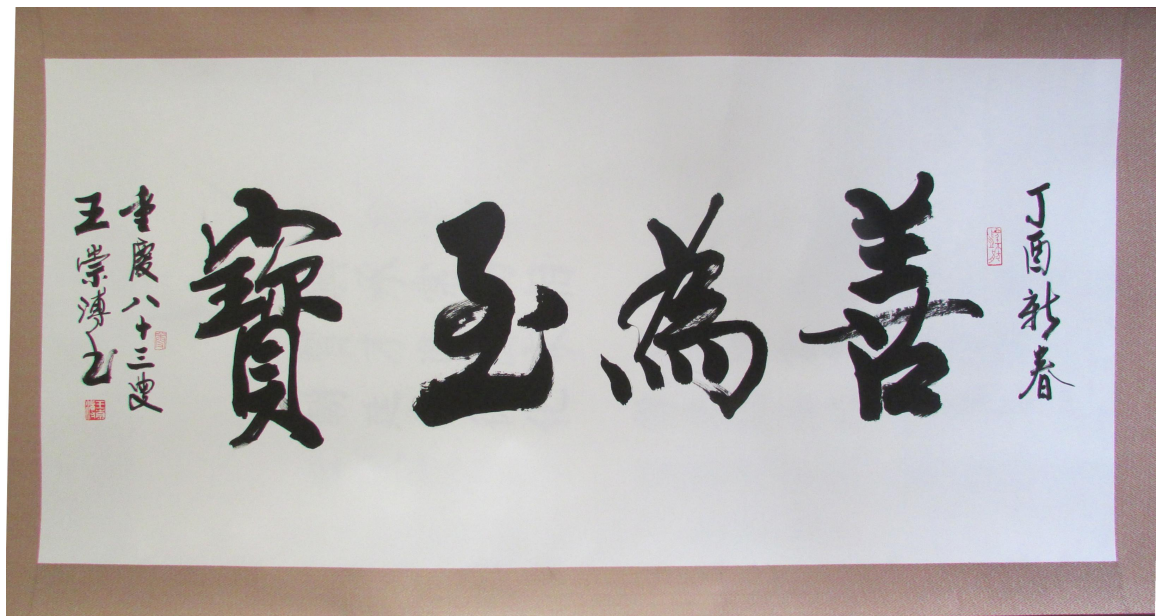 丁酉新春
善為至寶
重慶八十三叟
王崇溥书